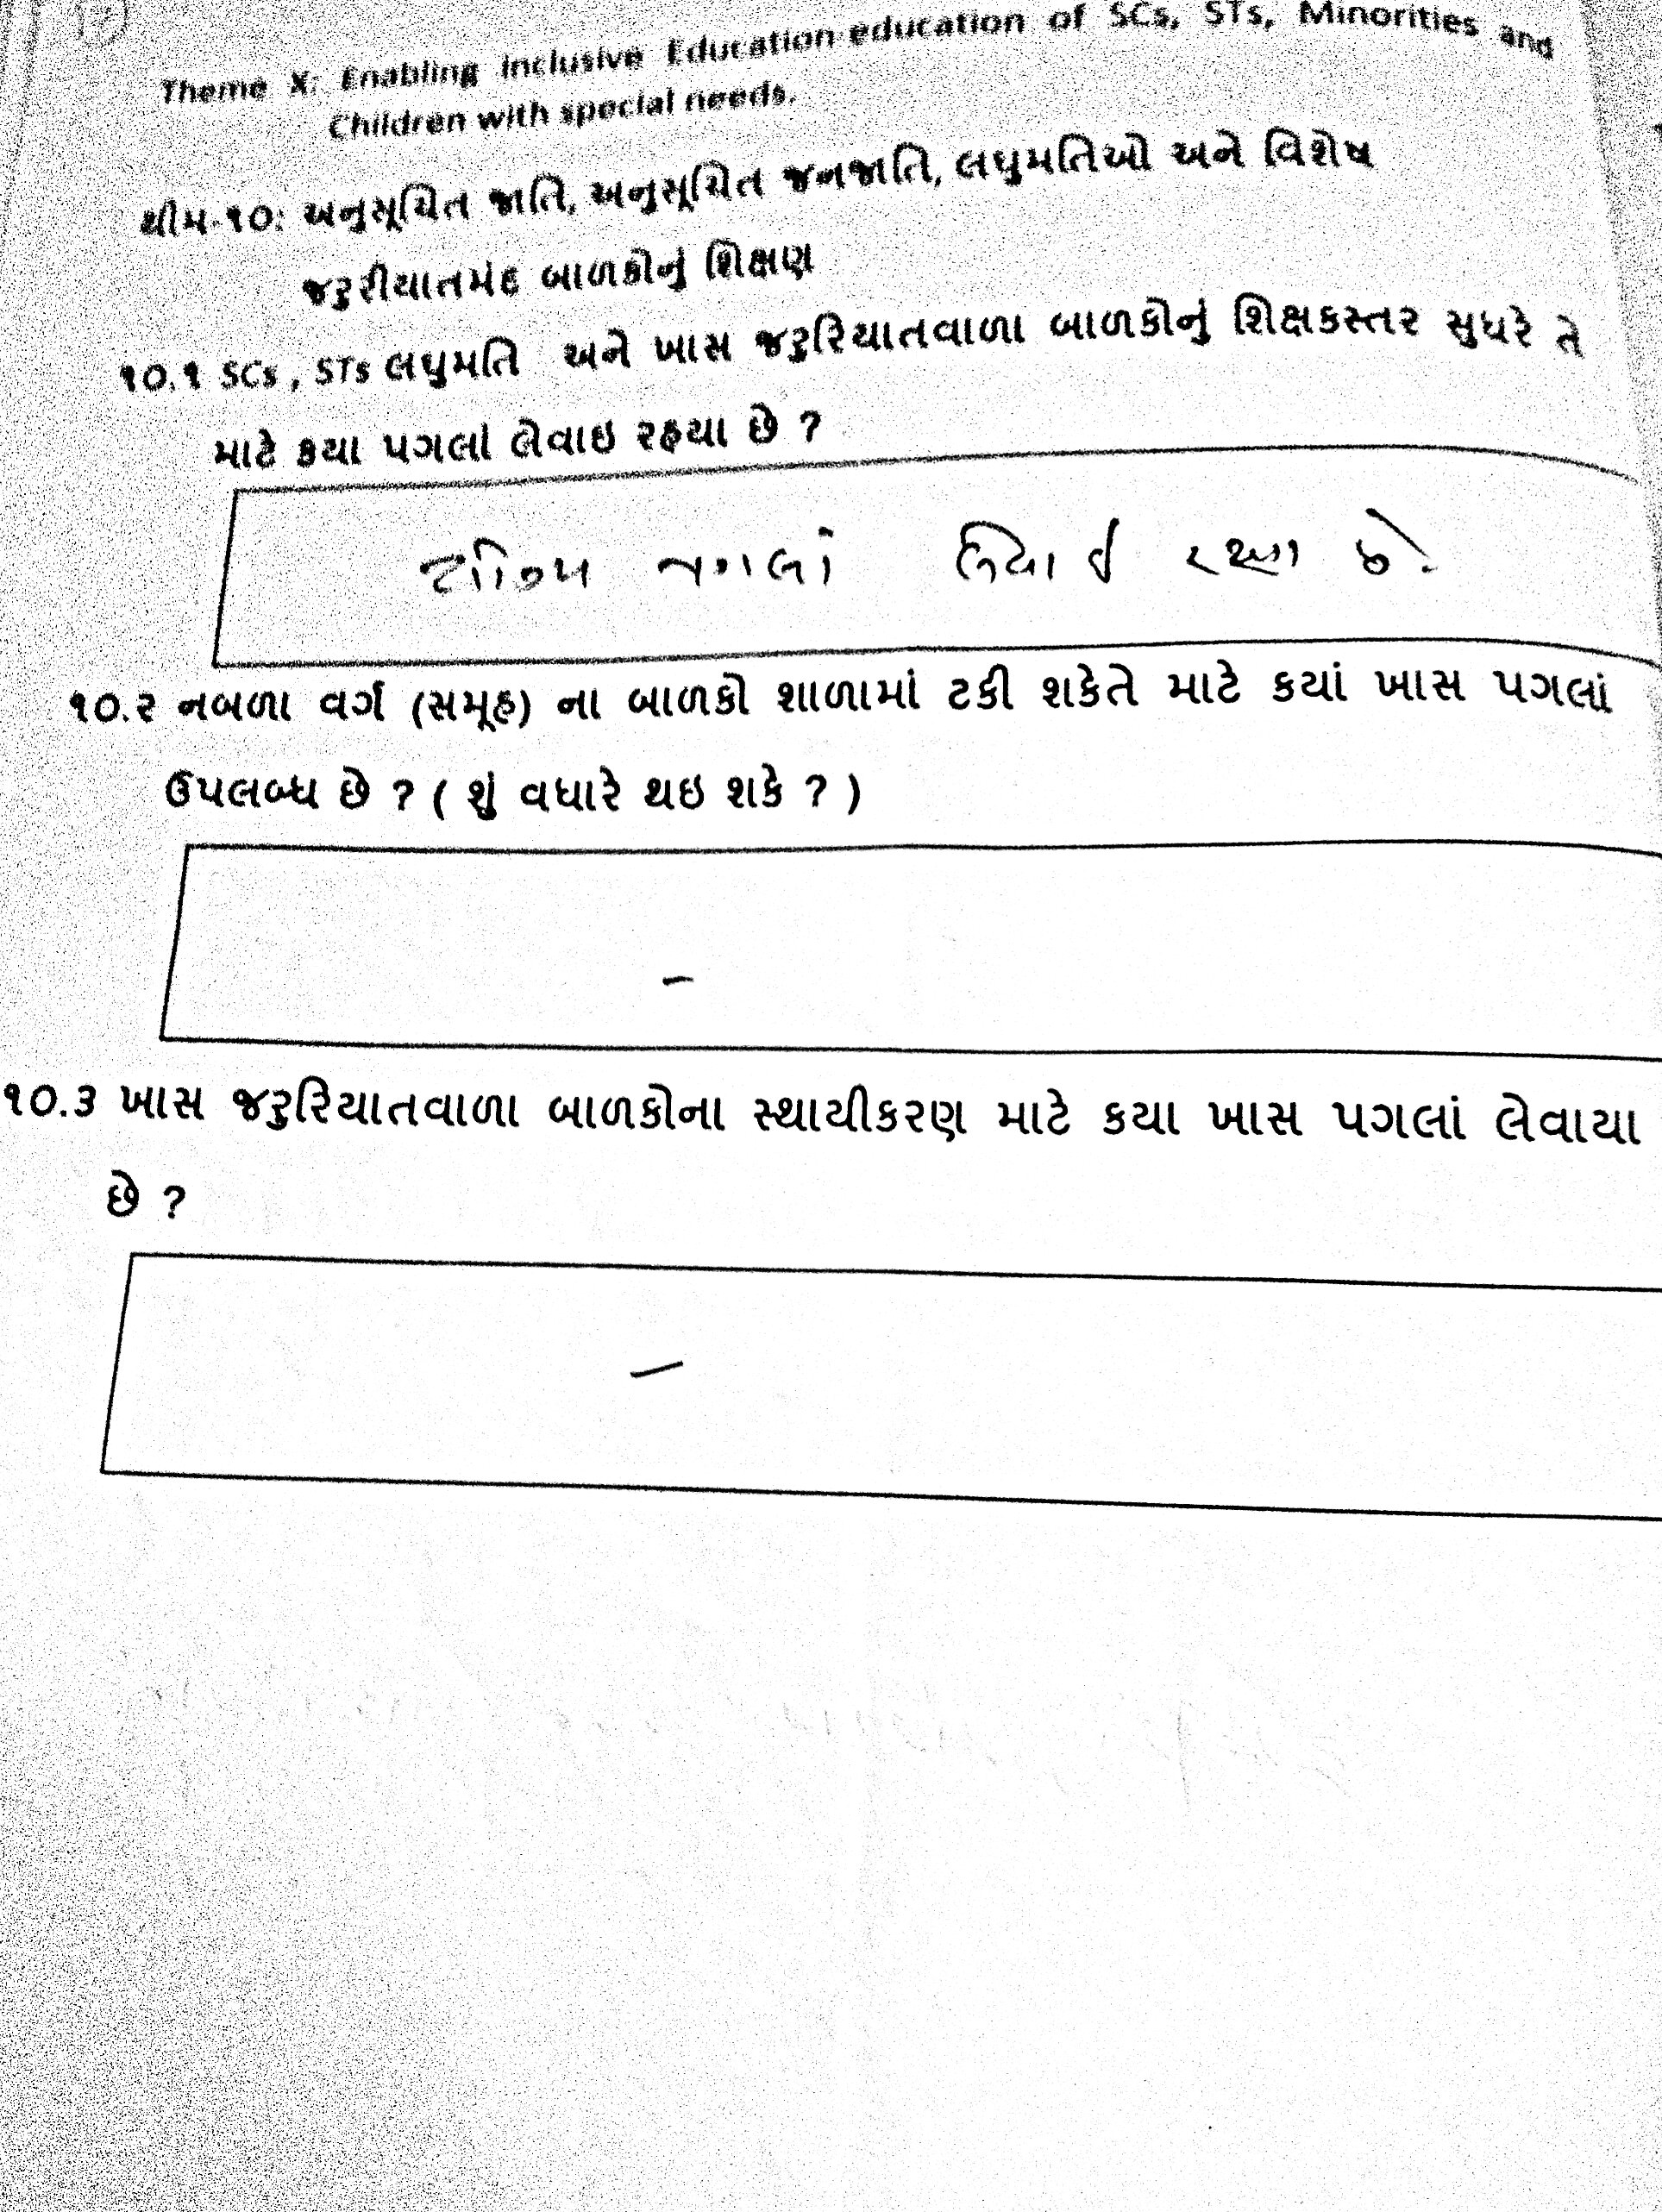 Theme X: Enabling inclusive Education education of SCs, STs, Minorities and
Children with special needs.
થીમ-૧૦: અનુસૂચિત જાતિ, અનુસૂચિત જનજાતિ, લઘુમતિઓ અને વિશેષ
જરૂરીયાતમંદ બાળકોનું શિક્ષણ
૧૦.૧ SCs , STs લઘુમતિ અને ખાસ જરૂરિયાતવાળા બાળકોનું શિક્ષકસ્તર સુધરે તે
માટે કયા પગલાં લેવાઇ રહ્યા છે ?
પગલાં લેવાઈ રહ્યા છે.
૧૦.૨ નબળા વર્ગ (સમૂહ) ના બાળકો શાળામાં ટકી શકેતે માટે કયાં ખાસ પગલાં
ઉપલબ્ધ છે ? ( શું વધારે થઇ શકે ? )
-
૧૦.૩ ખાસ જરૂરિયાતવાળા બાળકોના સ્થાયીકરણ માટે કયા ખાસ પગલાં લેવાયા
છે ?
-